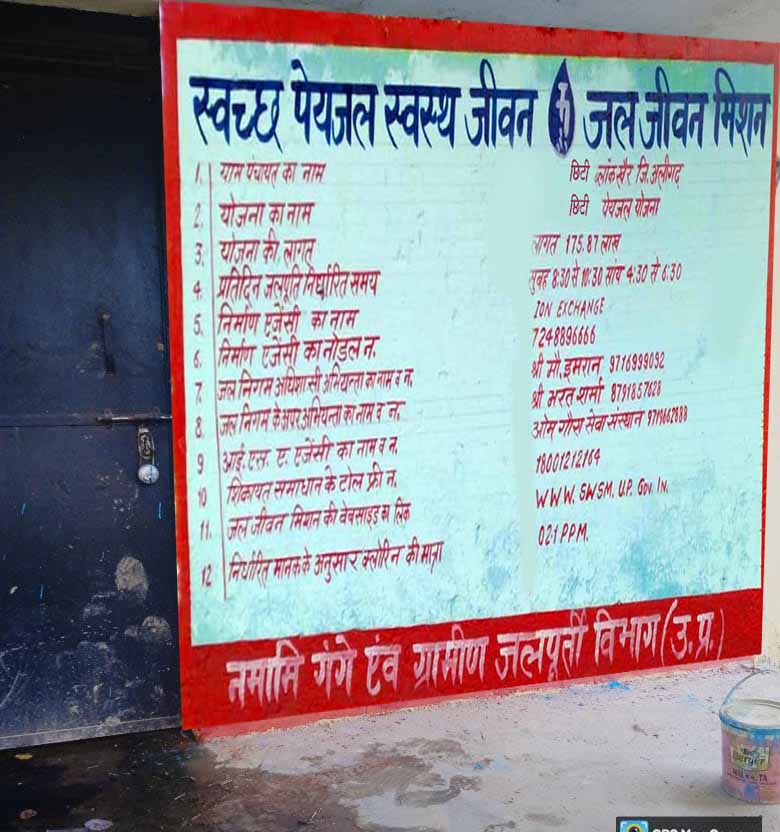 स्वच्छ पेयजल स्वस्थ जीवन जल जीवन मिशन
1. ग्राम पंचायत का नाम छिटी ब्लॉक खैर जि.अलीगढ़
2. योजना का नाम छिटी पेयजल योजना
3. योजना की लागत लागत 175.87 लाख
4. प्रतिदिन जलपूर्ति निर्धारित समय सुबह 8:30 से 10:30 सांय 4:30 से 6:30
5. निर्माण एजेंसी का नाम ION EXCHANGE
6. निर्माण एजेंसी का नोडल न. 7248896666
7. जल निगम अधिशासी अभियन्ता का नाम व न. श्री मौ. इमरान 9716999092
8. जल निगम के अपर अभियन्ता का नाम व न. श्री भरत शर्मा 8791857628
9 आई. एस. ए. एजेंसी का नाम व न. ओम गौरा सेवा संस्थान 9719662888
10 शिकायत समाधान के टोल फ्री न. 18001212164
11. जल जीवन मिशन की वेबसाइड का लिंक WWW. SWSM. U.P. Gov In.
12 निर्धारित मानक के अनुसार क्लोरिन की मात्रा 02.1 PPM.
नमामि गंगे एंव ग्रामीण जलपूर्ती विभाग (उ.प्र.)